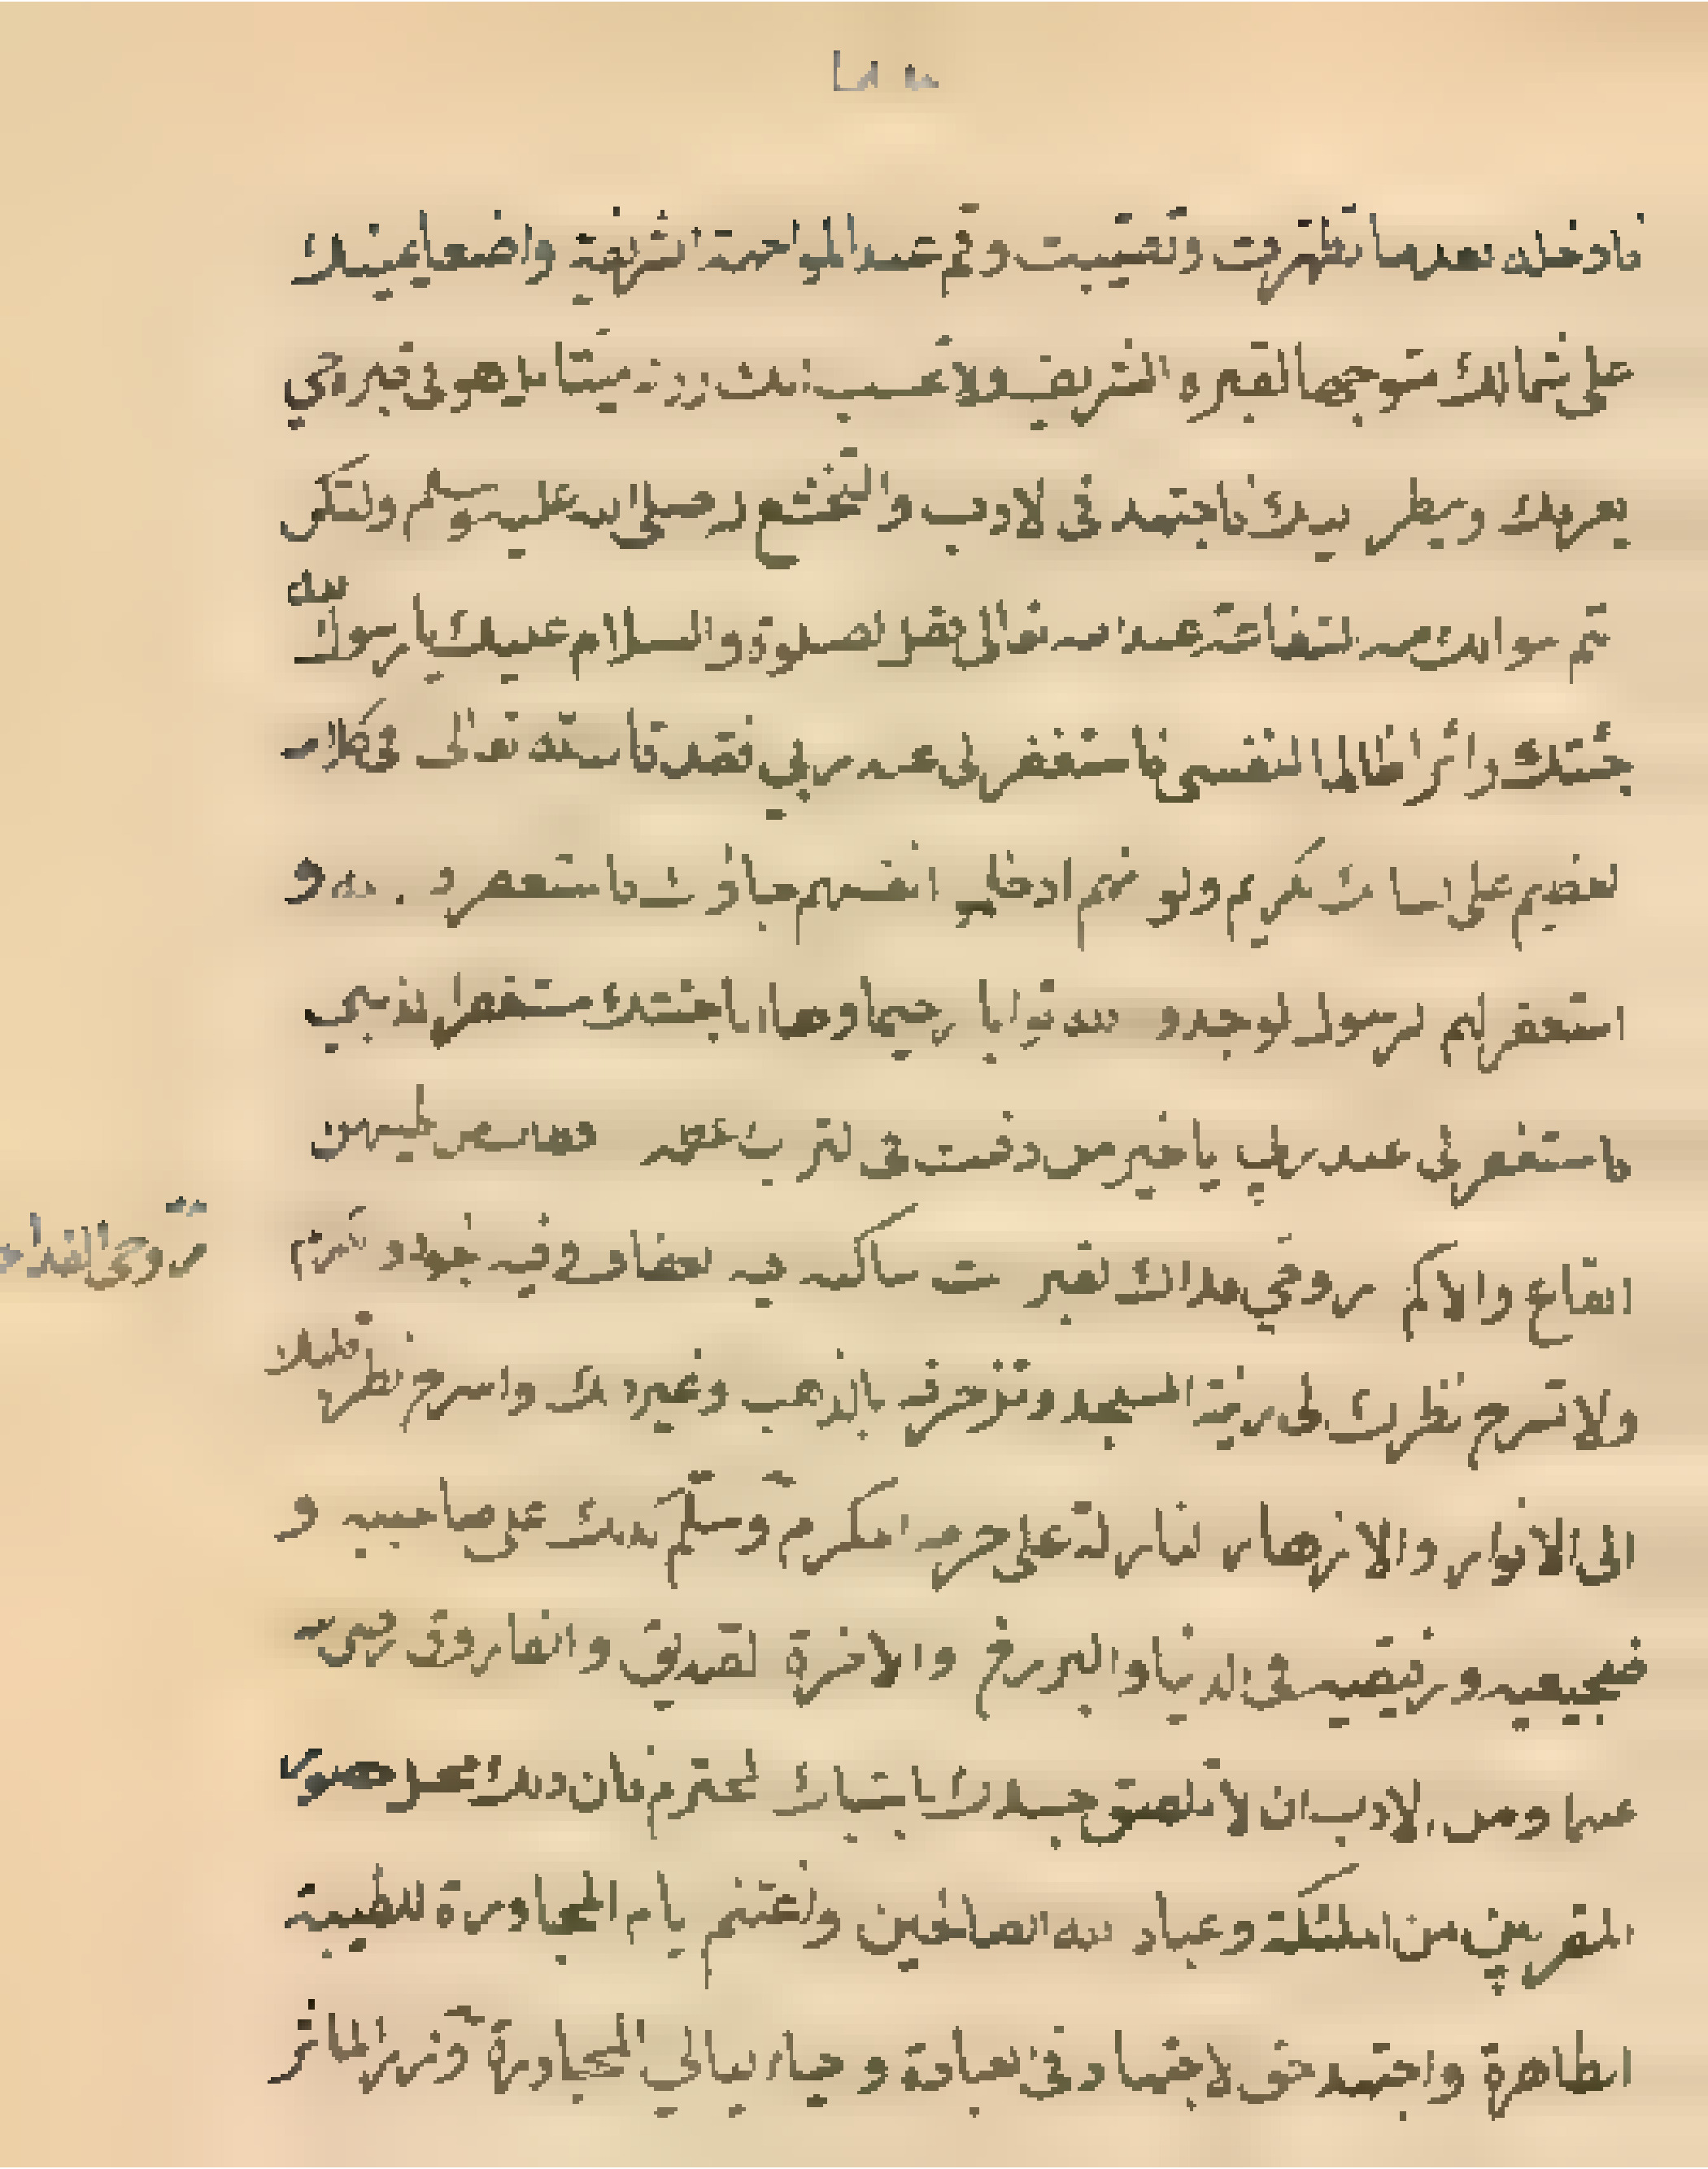 فادخله بعدما تطهرت وتطيبت وقم عند المواجهة الشريفة واضعا يمينك
على شمالك متوجها لقبره الشريف ولا تحسب انك زرته ميتا بل هو في قبره حي
يعرفك وينظر اليك فاجتهد في الادب والتخشع له صلى الله عليه وسلم ولتكن
ثم سوالك منه الشفاعة عند الله تعالى فقل الصلوة والسلام عليك يا رسول الله
جئتك زائرا ظالما لنفسي فاستغفر لي عند ربي فقد قال الله تعالى في كلامه
العظيم على لسانك الكريم ولو انهم اذ ظلموا انفسهم جاؤك فاستغفروا الله و
استغفر لهم الرسول لوجدوا الله توابا رحيما وها انا جئتك مستغفرا لذنبي
فاستغفر لي عند ربي يا خير من دفنت في الترب اعظمه فطاب من طيبهن
القاع والاكم روحي فداك لقبر انت ساكنه فيه العفاف وفيه الجود والكرم
روحي الفداء
ولا تسرح نظرك الى زينة المسجد وتزخرفه بالذهب وغيره بل واسرح نظر قلبك
الى الانوار والازهار النازلة على حرمه المكرم وسلم كذلك على صاحبيه و
ضجيعيه ورفيقيه في الدنيا والبرزخ والاخرة الصديق والفاروق رضي الله
عنهما ومن الادب ان لا تلصق جسدك بالشباك المحترم فان ذلك محل حضور
المقربين من الملئكة وعباد الله الصالحين واغتنم ايام المجاورة للطيبة
الطاهرة واجتهد حق الاجتهاد في العبادة واحياء ليالي المجاورة وزر المآثر